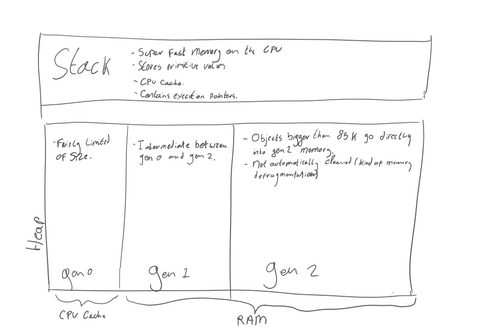 Stack
- Super fast memory on the CPU
- Stores primitive values
- CPU Cache.
- Contains execution pointers.
- Fairly limited
of size.
- Intermediate between
gen 0 and gen 2.
- Objects bigger than 85K go directly
into gen 2 memory.
- Not automatically cleaned (kind of memory
defragmentation)
Heap
gen 0
gen 1
gen 2
CPU Cache
RAM